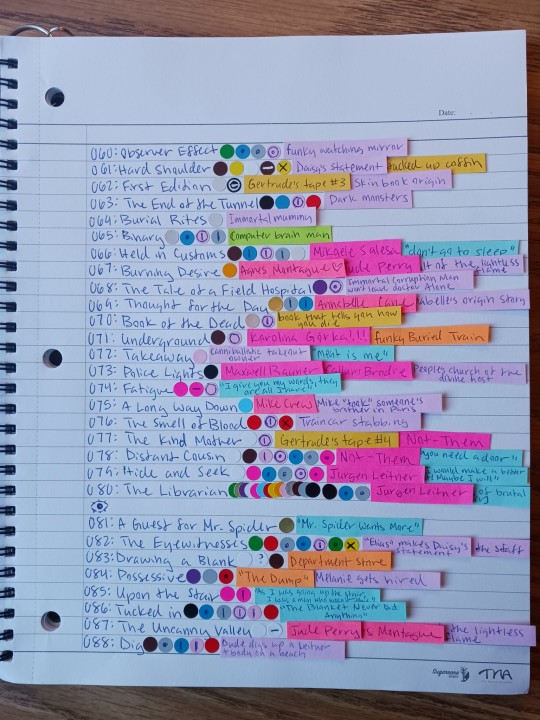 Date:
060: Observer Effect funky watching mirror
061: Hard Shoulder Daisy's statement fucked up coffin
062: First Edition Gertrude's tape #3 Skin book origin
063: The End of the Tunnel Dark monsters
064: Burial Rites Immortal mummy
065: Binary Computer brain man
066: Held in Customs Mikaele Salesa "don't go to sleep"
067: Burning Desire Agnes Montague Jude Perry of the lightless flame
068: The Tale of a Field Hospital Immortal Corruption Man won't leave doctor alone
069: Thought for the Day Annabelle Cane Annabelle's origin story
070: Book of the Dead book that tells you how you die
071: Underground Karolina Górka!!! funky Buried Train
072: Takeaway Cannibalistic takeout owner "Meat is me"
073: Police Lights Maxwell Rayner Callum Brodie People's church of the divine host
074: Fatigue "I give you my words, they are all I have"
075: A Long Way Down Mike Crew Mike "took" someone's brother in Paris
076: The Smell of Blood Traincar stabbing
077: The Kind Mother Gertrude's tape #4 Not-Them
078: Distant Cousin Not-Them you need a door"
079: Hide and Seek Jurgen Leitner would make a better Maybe I will"
080: The Librarian Jurgen Leitner of brutal
081: A Guest for Mr. Spider "Mr. Spider Wants More"
082: The Eyewitnesses "Elias" makes Daisy's statement the staff
083: Drawing a Blank ? Department store
084: Possessive "The Dump" Melanie gets hired
085: Upon the Stair "As I was going up the stair, I was a man who wasn't there"
086: Tucked in "The Blanket Never Did Anything"
087: The Uncanny Valley Jude Perry Montague the lightless flame
088: Dig Dude digs up a Leitner + body on a beach
TMA